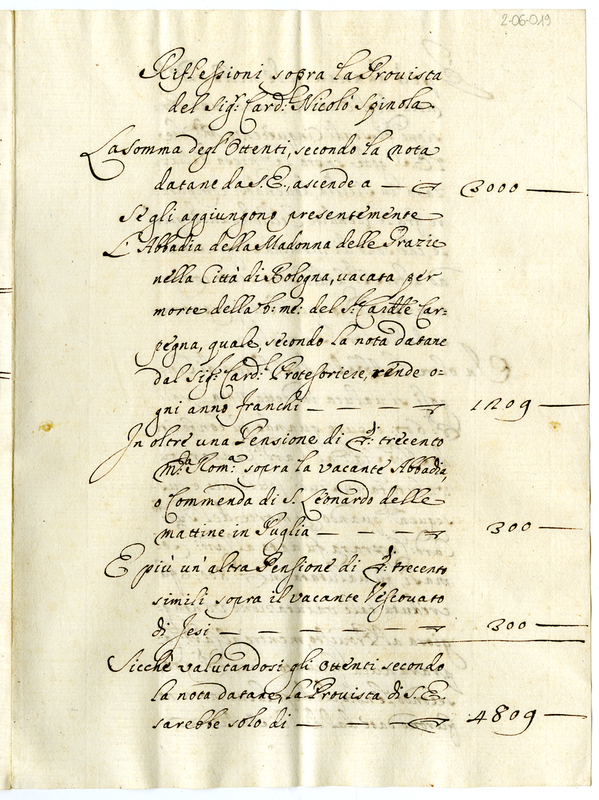 2-06-019
Riflessioni sopra la Provista
del Sig.r Card.l Nicolò Spinola
La somma degl'Ottenti, secondo la nota
datane da S.E., ascende a — 3000 —
Se gli aggiungono presentemente
L'Abbadia della Madonna delle Grazie
nella Città di Bologna, vacata per
morte della b: me: del S.r Cardle Car=
pegna, quale, secondo la nota datane
dal Sig.r Card.l Protesoriere, rende o=
gni anno franchi — — — 1209 —
In oltre una Pensione di trecento
m.ta Rom.a sopra la vacante Abbadia,
o Commenda di S. Leonardo delle
mattine in Puglia — — — 300 —
E più un'altra Pensione di trecento
simili sopra il vacante Vescovato
di Jesi — — — — — 300 —
Sicchè valutandosi gli Ottenti secondo
la nota datane, la Provista di S.E.
sarebbe solo di — — — 4809 —